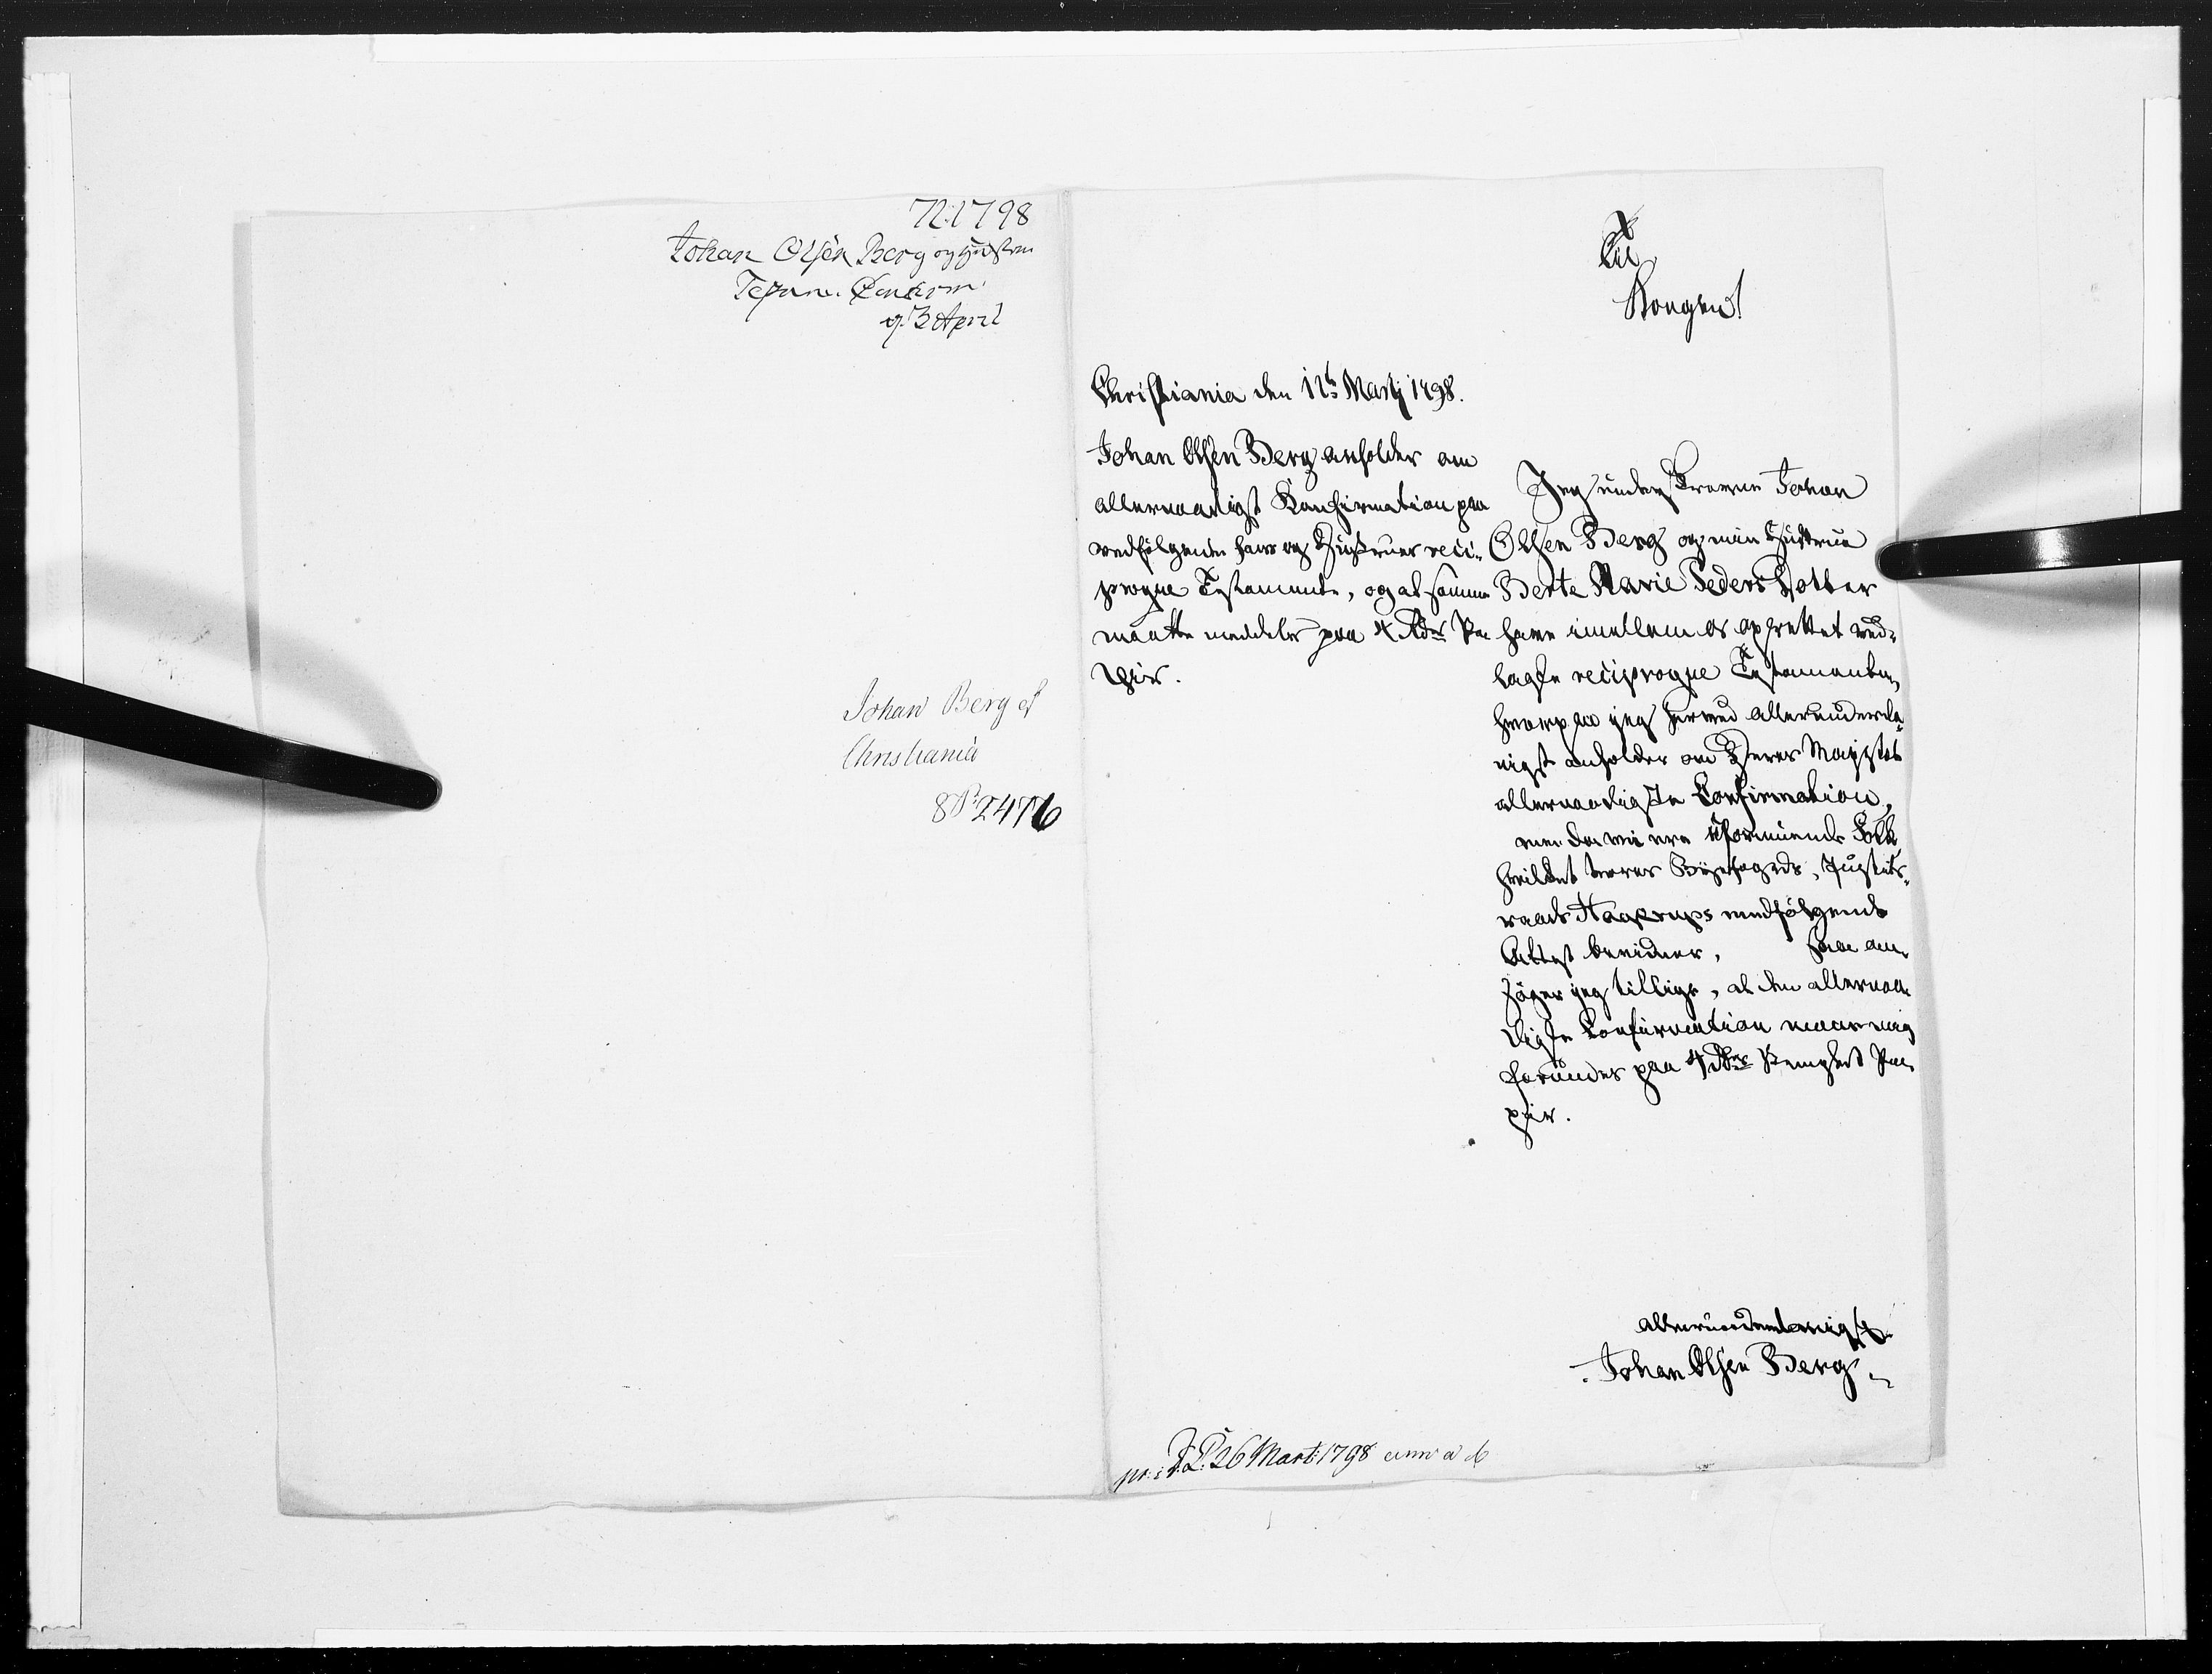 N: 1798
Johan Olsen Berg og Hustrues
Testam. Conferm:
3 April
Johan Berg af
Christiania
8 P: 2476
Til
Kongen!
Christiania den 11te Martj 1798.
Johan Olsen Berg anholder om
allernaadigst Konfirmation paa
vedfølgende hans og Hustrues reci-
proqve Testamente, og at samme
maatte meddeles paa 4 Rdrs Pa
pir.
Jeg underskrevne Johan
Olsen Berg og min Hustrue
Berte Marie Peders Dotter
have imellem os oprettet ved-
lagte reciproqve Testamente,
hvorpaa jeg herved allerunderda-
nigst anholder om Deres Mayestets
allernaadigste Confirmation,
men da vi ere uformuende Folk,
hvilket vores Byefogeds, Justits-
raads Haxrups medfølgende
Attest beviidner, saa an-
søger jeg tillige, at den allernaa
digste Confirmation maae mig
forundes paa 4 Rdrs stemplet Pa-
pir.
allerunderdanigst
Johan Olsen Berg
pr: i D. C. 26 Mart: 1798